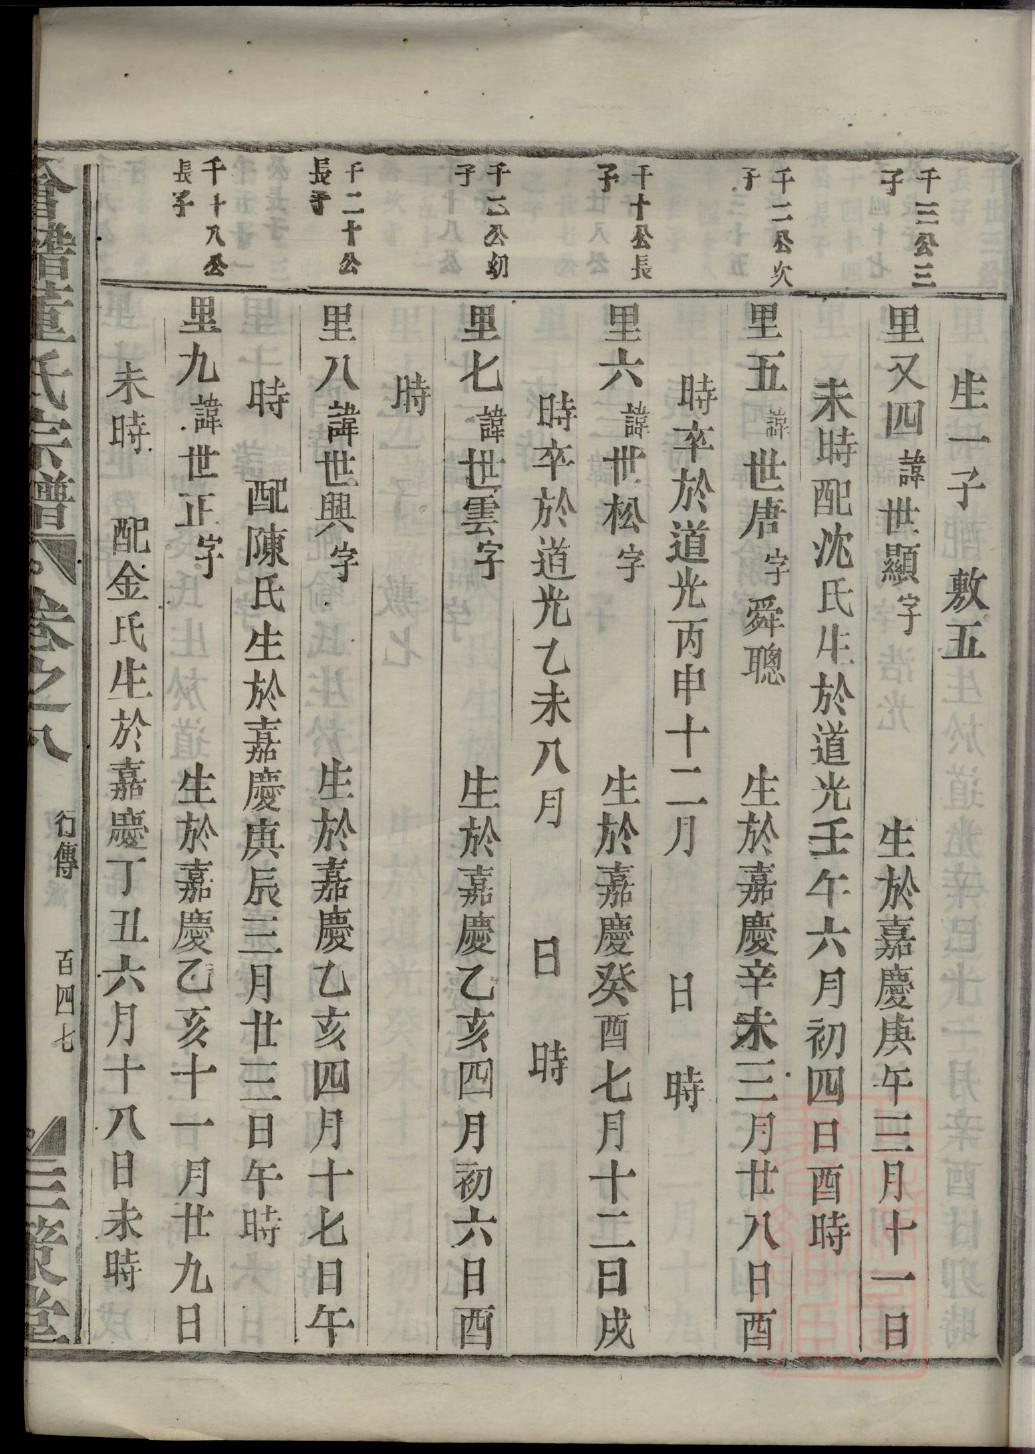 生一子 敷五
千三公三
子
里又四 諱世顯 字 生於嘉慶庚午三月十一日
未時配沈氏生於道光壬午六月初四日酉時
千二公次
子
里五 諱世唐 字舜聰 生於嘉慶辛未三月廿八日酉
時卒於道光丙申十二月 日 時
千十公長
子
里六 諱世松 字 生於嘉慶癸酉七月十二日戌
時卒於道光乙未八月 日 時
千三公幼
子
里七 諱世雲 字 生於嘉慶乙亥四月初六日酉
時
千二十公
長子
里八 諱世興 字 生於嘉慶乙亥四月十七日午
時 配陳氏生於嘉慶庚辰三月廿三日午時
千十八公
長子
里九 諱世正 字 生於嘉慶乙亥十一月廿九日
未時 配金氏生於嘉慶丁丑六月十八日未時
會稽董氏宗譜 卷之八 行傳 百四七 三策堂